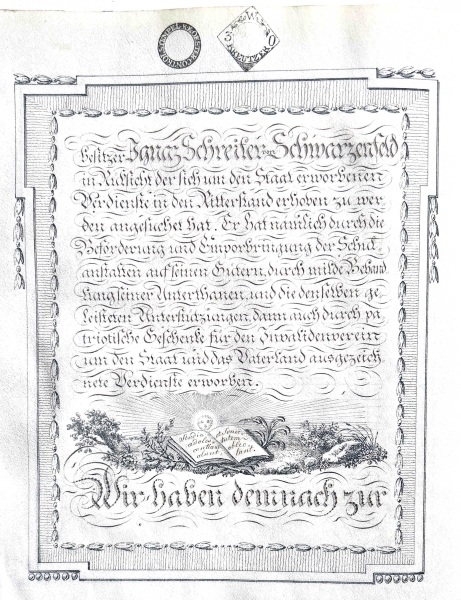 besitzer Ignaz Schreiter von Schwarzenfeld
in Rücksicht der sich um den Staat erworbenen
Verdienste in den Ritterstand erhoben zu wer
den angesuchet hat. Er hat nämlich durch die
Beförderung und Emporbringung der Schul
anstalten auf seinen Gütern, durch milde Behand
lung seiner Unterthanen, und die denselben ge
leisteten Unterstützungen, dann auch durch pa
triotische Geschenke für den Invalidenverein
um den Staat und das Vaterland ausgezeich
nete Verdienste erworben.
Studia
adoles
centiam
alunt
senec
tutem
oblec
tant.
Wir haben demnach zur